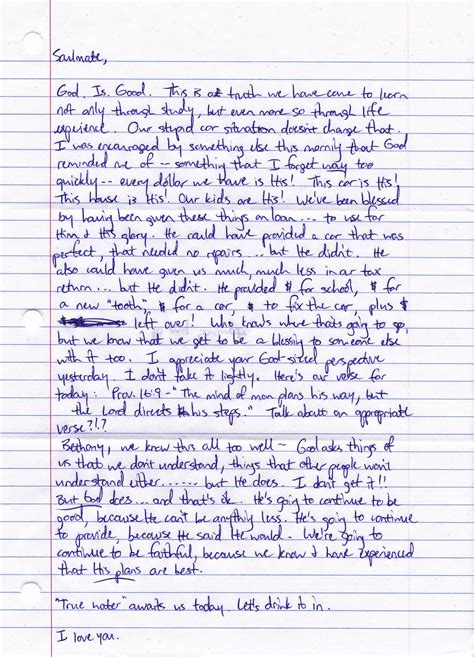 Soulmate,
God. Is. Good. This is a truth we have come to learn
not only through study, but even more so through life
experience. Our stupid car situation doesn't change that.
I was encouraged by something else this morning that God
reminded me of -- something that I forget way too
quickly -- every dollar we have is His! This car is His!
This house is His! Our kids are His! We've been blessed
by having been given these things on loan... to use for
Him & His glory. He could have provided a car that was
perfect, that needed no repairs... but He didn't. He
also could have given us much, much less in our tax
return... but He didn't. He provided $ for school, $ for
a new "tooth", $ for a car, $ to fix the car, plus $
left over! Who knows where that's going to go,
but we know that we get to be a blessing to someone else
with it too. I appreciate your God-sized perspective
yesterday. I don't take it lightly. Here's our verse for
today: Prov. 16:9 - "The mind of man plans his way, but
the Lord directs his steps." Talk about an appropriate
verse?!?
Bethany, we know this all too well - God asks things of
us that we don't understand, things that other people won't
understand either...... but He does. I don't get it!!
But God does... and that's ok. He's going to continue to be
good, because He can't be anything less. He's going to continue
to provide, because He said He would. We're going to
continue to be faithful, because we know & have experienced
that His plans are best.
"True water" awaits us today. Let's drink it in.
I love you.